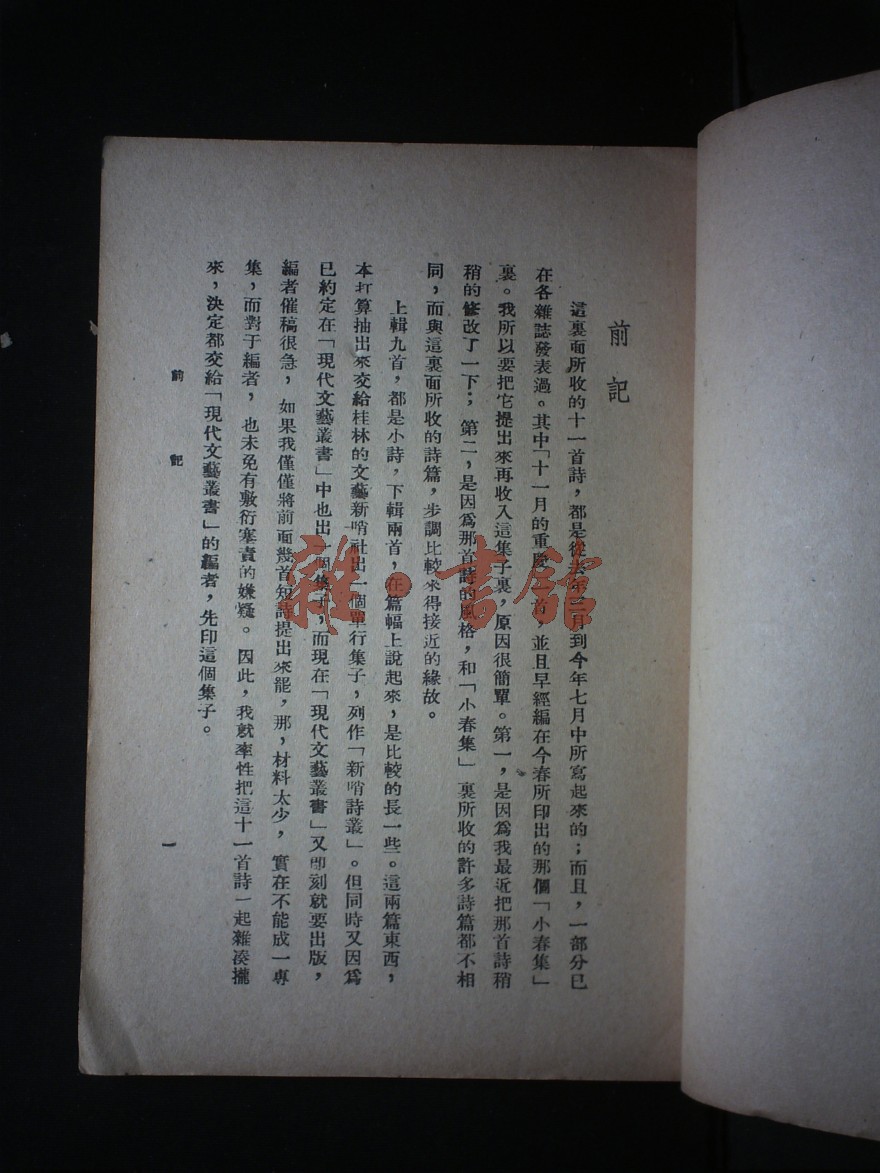 前記
這裏面所收的十一首詩，都是從去年三月到今年七月中所寫起來的；而且，一部分已
在各雜誌發表過。其中「十一月的重慶」一首，並且早經編在今春所印出的那個「小春集」
裏。我所以要把它提出來再收入這集子裏，原因很簡單。第一，是因爲我最近把那首詩稍
稍的修改了一下；第二，是因爲那首詩的風格，和「小春集」裏所收的許多詩篇都不相
同，而與這裏面所收的詩篇，步調比較來得接近的緣故。
上輯九首，都是小詩，下輯兩首，在篇幅上說起來，是比較的長一些。這兩篇東西，
本打算抽出來交給桂林的文藝新哨社出一個單行集子，列作「新哨詩叢」。但同時又因爲
已約定在「現代文藝叢書」中也出一個集子，而現在「現代文藝叢書」又即刻就要出版，
編者催稿很急，如果我僅僅將前面幾首短詩提出來罷，那，材料太少，實在不能成一專
集，而對于編者，也未免有敷衍塞責的嫌疑。因此，我就率性把這十一首詩一起雜湊攏
來，決定都交給「現代文藝叢書」的編者，先印這個集子。
前記
一
雜·書館